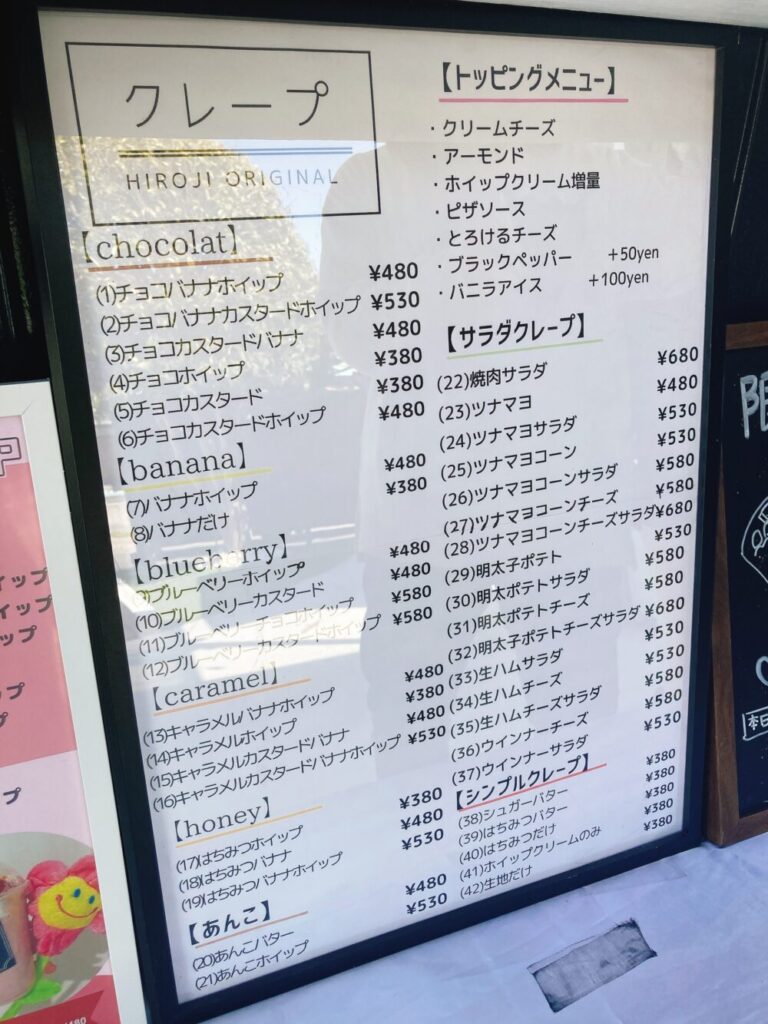 クレープ
HIROJI ORIGINAL
【chocolat】
(1)チョコバナナホイップ ¥480
(2)チョコバナナカスタードホイップ ¥530
(3)チョコカスタードバナナ ¥480
(4)チョコホイップ ¥380
(5)チョコカスタード ¥380
(6)チョコカスタードホイップ ¥480
【banana】
(7)バナナホイップ ¥480
(8)バナナだけ ¥380
【blueberry】
(9)ブルーベリーホイップ ¥480
(10)ブルーベリーカスタード ¥480
(11)ブルーベリーチョコホイップ ¥580
(12)ブルーベリーカスタードホイップ ¥580
【caramel】
(13)キャラメルバナナホイップ ¥480
(14)キャラメルホイップ ¥380
(15)キャラメルカスタードバナナ ¥480
(16)キャラメルカスタードバナナホイップ ¥530
【honey】
(17)はちみつホイップ ¥380
(18)はちみつバナナ ¥480
(19)はちみつバナナホイップ ¥530
【あんこ】
(20)あんこバター ¥480
(21)あんこホイップ ¥530
【トッピングメニュー】
・クリームチーズ
・アーモンド
・ホイップクリーム増量
・ピザソース
・とろけるチーズ
・ブラックペッパー +50yen
・バニラアイス +100yen
【サラダクレープ】
(22)焼肉サラダ ¥680
(23)ツナマヨ ¥480
(24)ツナマヨサラダ ¥530
(25)ツナマヨコーン ¥530
(26)ツナマヨコーンサラダ ¥580
(27)ツナマヨコーンチーズ ¥580
(28)ツナマヨコーンチーズサラダ ¥680
(29)明太子ポテト ¥530
(30)明太ポテトサラダ ¥580
(31)明太ポテトチーズ ¥580
(32)明太子ポテトチーズサラダ ¥680
(33)生ハムサラダ ¥530
(34)生ハムチーズ ¥530
(35)生ハムチーズサラダ ¥580
(36)ウインナーチーズ ¥580
(37)ウインナーサラダ ¥530
【シンプルクレープ】
(38)シュガーバター ¥380
(39)はちみつバター ¥380
(40)はちみつだけ ¥380
(41)ホイップクリームのみ ¥380
(42)生地だけ
イップ
イップ
ップ
プ